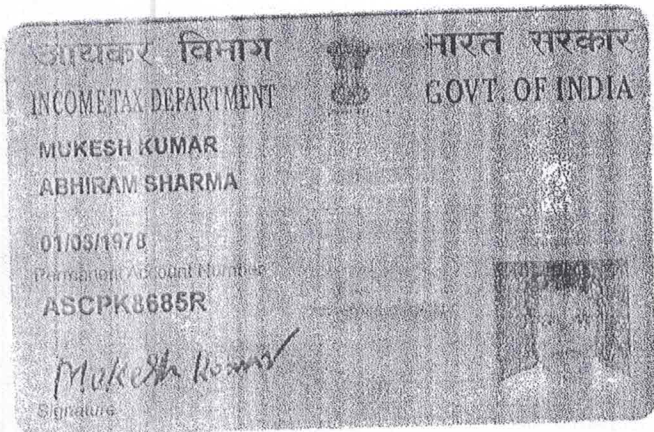 आयकर विभाग
भारत सरकार
INCOME TAX DEPARTMENT
GOVT. OF INDIA
MUKESH KUMAR
ABHIRAM SHARMA
01/03/1978
Permanent Account Number
ASCPK8685R
Mukesh Kumar
Signature